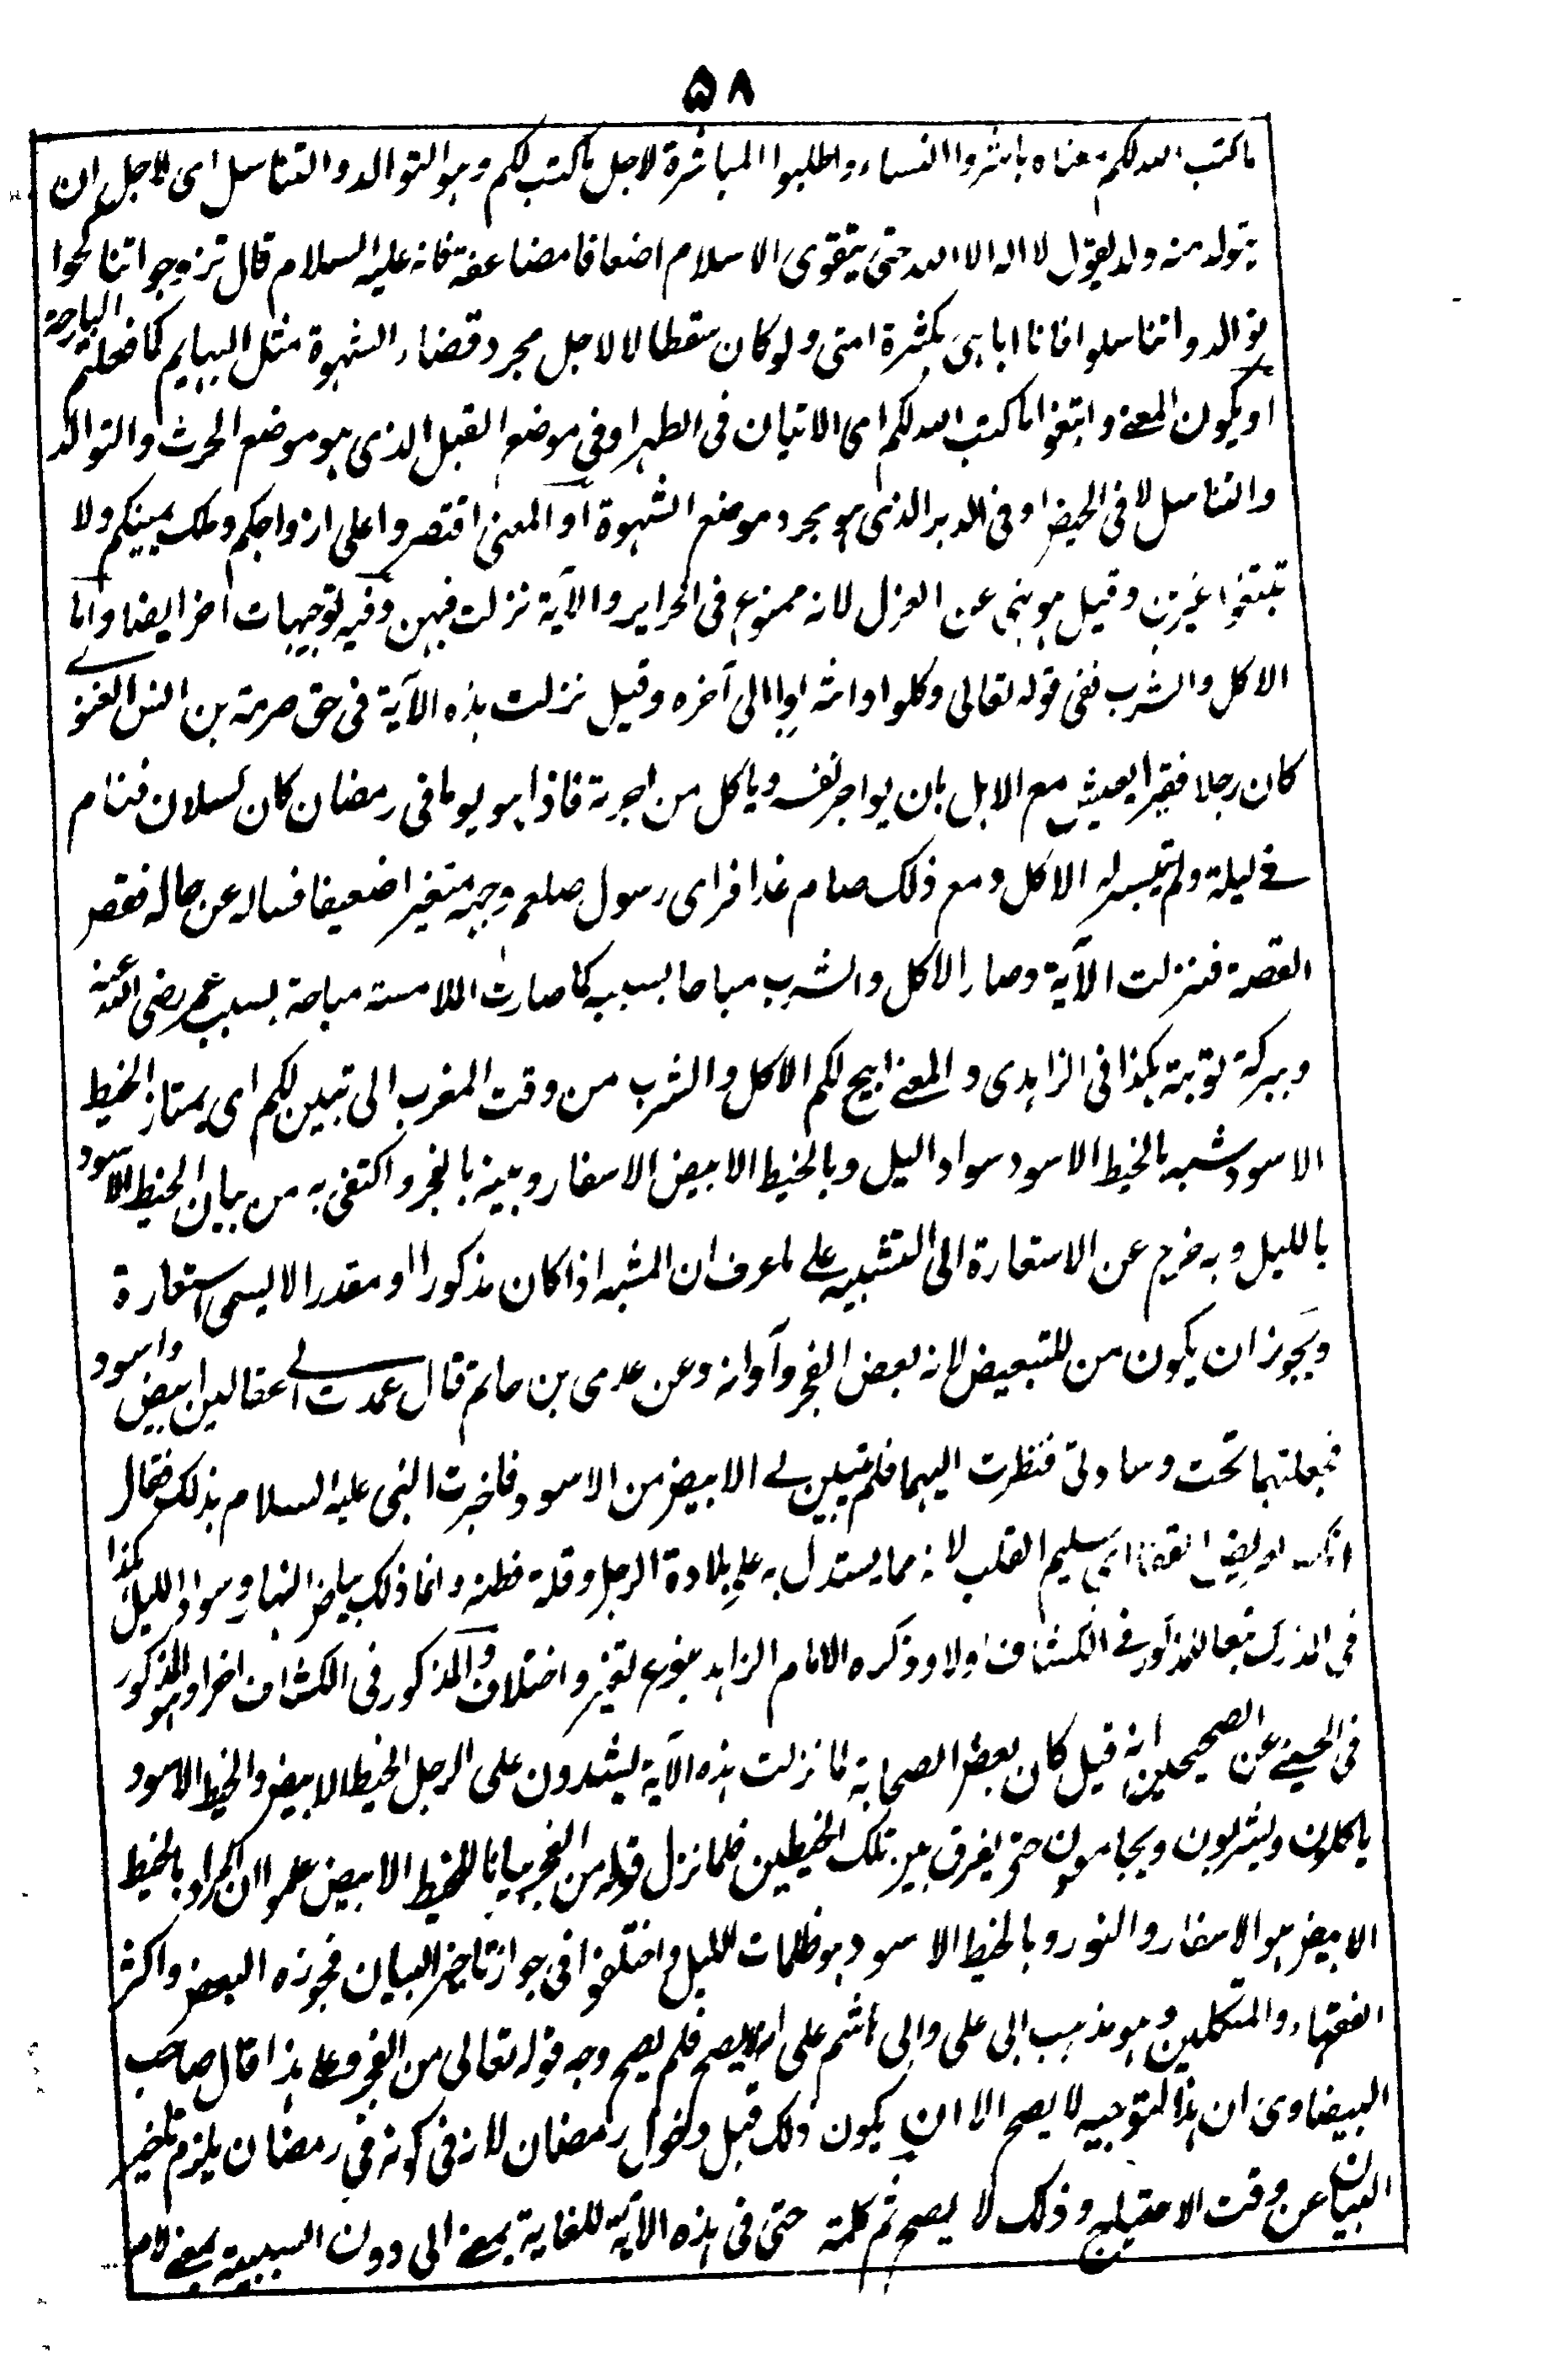 ۵۸
ما كتب الله لكم معناه باشروا النساء واطلبوا المباشرة لاجل ما كتب لكم وهو التوالد والتناسل اى لاجل ان
يتولد منه ولد يقول لا اله الا الله حتى يتقوى الاسلام اضعافا مضاعفة فانه عليه السلام قال تزوجوا تناكحوا
توالدوا تناسلوا فانا اباهى بكثرة امتى ولو كان سقطا لا لاجل مجرد قضاء الشهوة مثل البهايم كما فعلتم البارحة
او يكون المعنے وابتغوا ما كتب الله لكم اى الاتيان فى الطهر او فى موضع القبل الذى هو موضع الحرث والتوالد
والتناسل لا فى الحيض او فى الدبر الذى هو مجرد موضع الشهوة او المعنى اقتصروا على ازواجكم وملك يمينكم ولا
تبتغوا غيرهن وقيل هو نهى عن العزل لانه ممنوع فى الحراير والآية نزلت فيهن وفيه توجيهات اخر ايضا واما
الاكل والشرب ففى قوله تعالى وكلوا واشربوا الى آخره وقيل نزلت هذه الآية فى حق صرمة بن انس الغنوے
كان رجلا فقيرا يعيش مع الابل بان يواجر نفسه وياكل من اجرته فاذا هو يوما فى رمضان كان كسلان فنام
فے ليلة ولم تيسر له الاكل ومع ذلك صام غدا فراى رسول صلعم وجهه متغيرا ضعيفا فساله عن حاله فقصر
القصة فنزلت الآية وصار الاكل والشرب مباحا بسببه كما صارت الملامسة مباحة بسبب عمر رضى الله عنه
وببركة توبته هكذا فى الزاهدى والمعنے ابيح لكم الاكل والشرب من وقت المغرب الى تبين لكم اى يمتاز الخيط
الاسود شبه بالخيط الاسود سواد اليل وبالخيط الابيض الاسفار وبينه بالفجر واكتفى به من بيان الخيط الاسود
بالليل وبه خرج عن الاستعارة الى التشبيه على ما عرف ان المشبه اذا كان مذكورا او مقدرا لا يسمى استعارة
ويجوز ان يكون من للتبعيض لانه بعض الفجر وآوانه وعن عدى بن حاتم قال عمدت الى عقالين ابيض واسود
فجعلتهما تحت وسادتى فنظرت اليهما فلم يتبين لے الابيض من الاسود فاخبرت النبى عليه السلام بذلك فقال
انك لعريض القفا اى سليم القلب لانه مما يستدل به على بلادة الرجل وقلة فطنه وانما ذلك بياض النهار وسواد الليل هكذا
فى المدارك تبعا للمذكور فے الكشاف اولا وذكره الامام الزاهد بنوع تغير واختلاف والمذكور فى الكشاف اخرا وهو المذكور
فى الحسينے عن الصحيحين انه قيل كان بعض الصحابة لما نزلت هذه الآية يشدون على الرجل الخيط الابيض والخيط الاسود
ياكلون ويشربون ويجامعون حتى يفرق بين تلك الخيطين فلما نزل قوله من الفجر بيانا للخيط الابيض علموا ان المراد بالخيط
الابيض هو الاسفار والنور وبالخيط الاسود هو ظلمات الليل واختلفوا فى جواز تاخير البيان فجوزه البعض واكثر
الفقهاء والمتكلمين وهو مذهب ابى على وابى هاشم على انه لا يصح فلم يصح وجه قوله تعالى من الفجر وعلى هذا قال صاحب
البيضاوى ان هذا التوجيه لا يصح الا ان يكون ذلك قبل دخول رمضان لانه فى كونه فى رمضان يلزم تاخير
البيان عن وقت الاحتياج وذلك لا يصح ثم كلمة حتى فى هذه الآية للغاية بمعنے الى دون السببية بمعنے لام